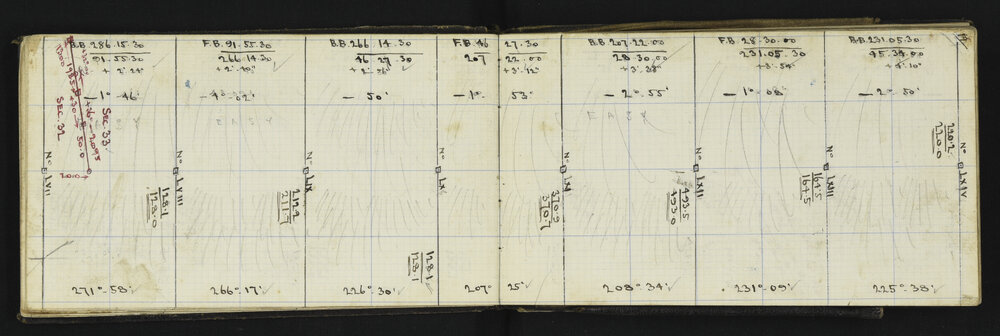 B.B. 286.15.30
91.55.30
+ 2°.24'
— 1° — 46'
SEC. 33
SEC. 32
No LVII
271° — 58'
F.B. 91.55.30
266.14.30
+ 2°.40'
— 4° — 02'
EASY
No LVIII
128.1
128.0
266° — 17'
B.B. 266.14.30
46.27.30
+ 2°.56'
— 50'
No LIX
212.2
211.9
226° — 30'
F.B. 46 27.30
207 22.00
+ 3°.12'
— 1° — 53'
No LX
128.1
128.1
207° 25'
B.B. 207.22.00
28.30.00
+ 3°.38'
— 2° — 55'
EASY
No LXI
370.9
370.7
208° — 34'
F.B. 28.30.00
231.05.30
+ 3°.54'
— 1° — 08'
No LXII
493.5
493.0
231° — 09'
B.B. 231.05.30
45.34.00
+ 4°.10'
— 2° — 50'
No LXIII
164.5
164.5
225° — 38'
No LXIV
220.2
220.0